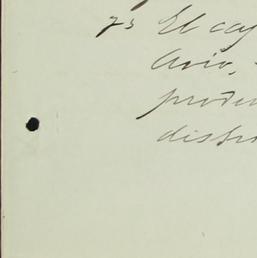 73 El cap
Avio,
produ
distri